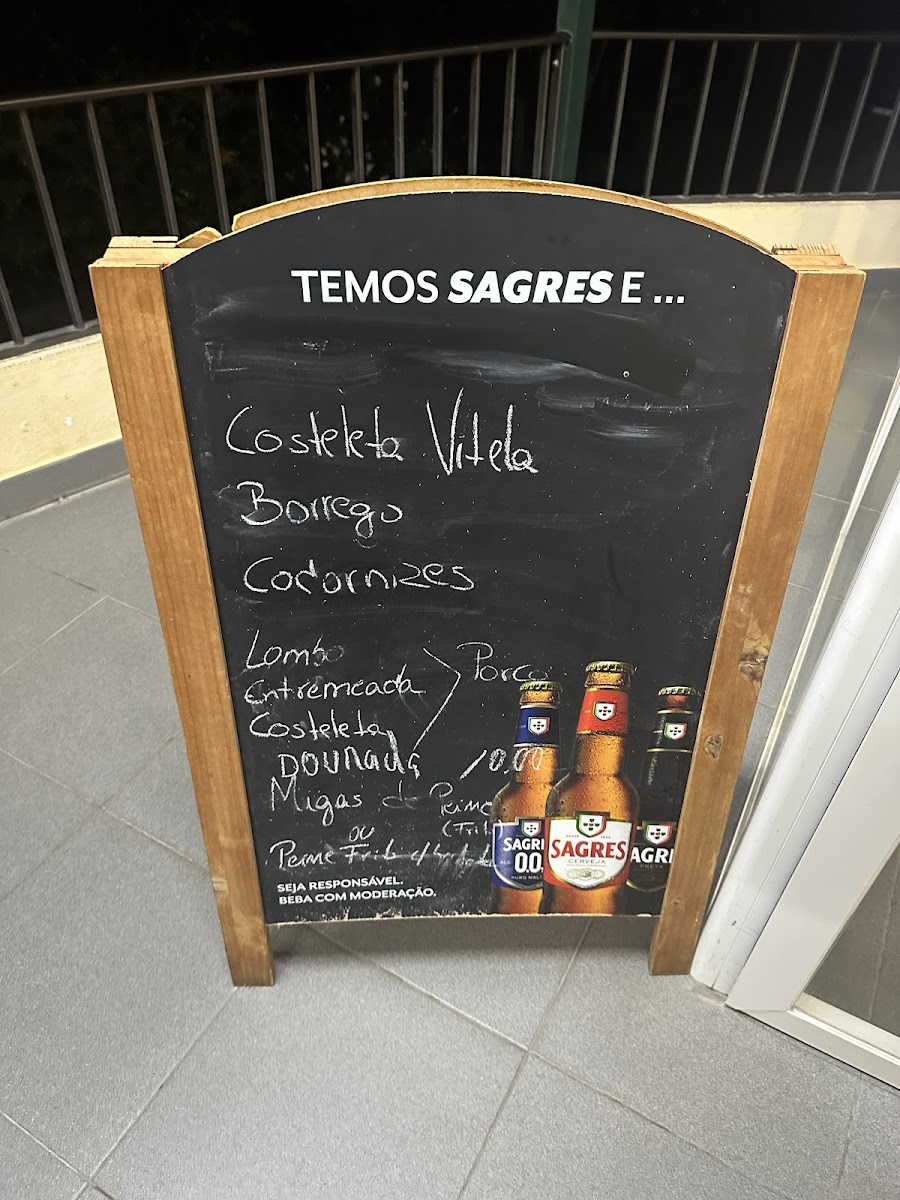 TEMOS SAGRES E ...
Costeleta Vitela
Borrego
Codornizes
Lombo
Entremeada
Costeleta
Porco
DOURADA 10,00
Migas de Peixe
(Frito)
ou
Peixe Frito c/
SEJA RESPONSÁVEL.
BEBA COM MODERAÇÃO.
SAGRE
0.0
SAGRES
CERVEJA
AGRE
PRETA